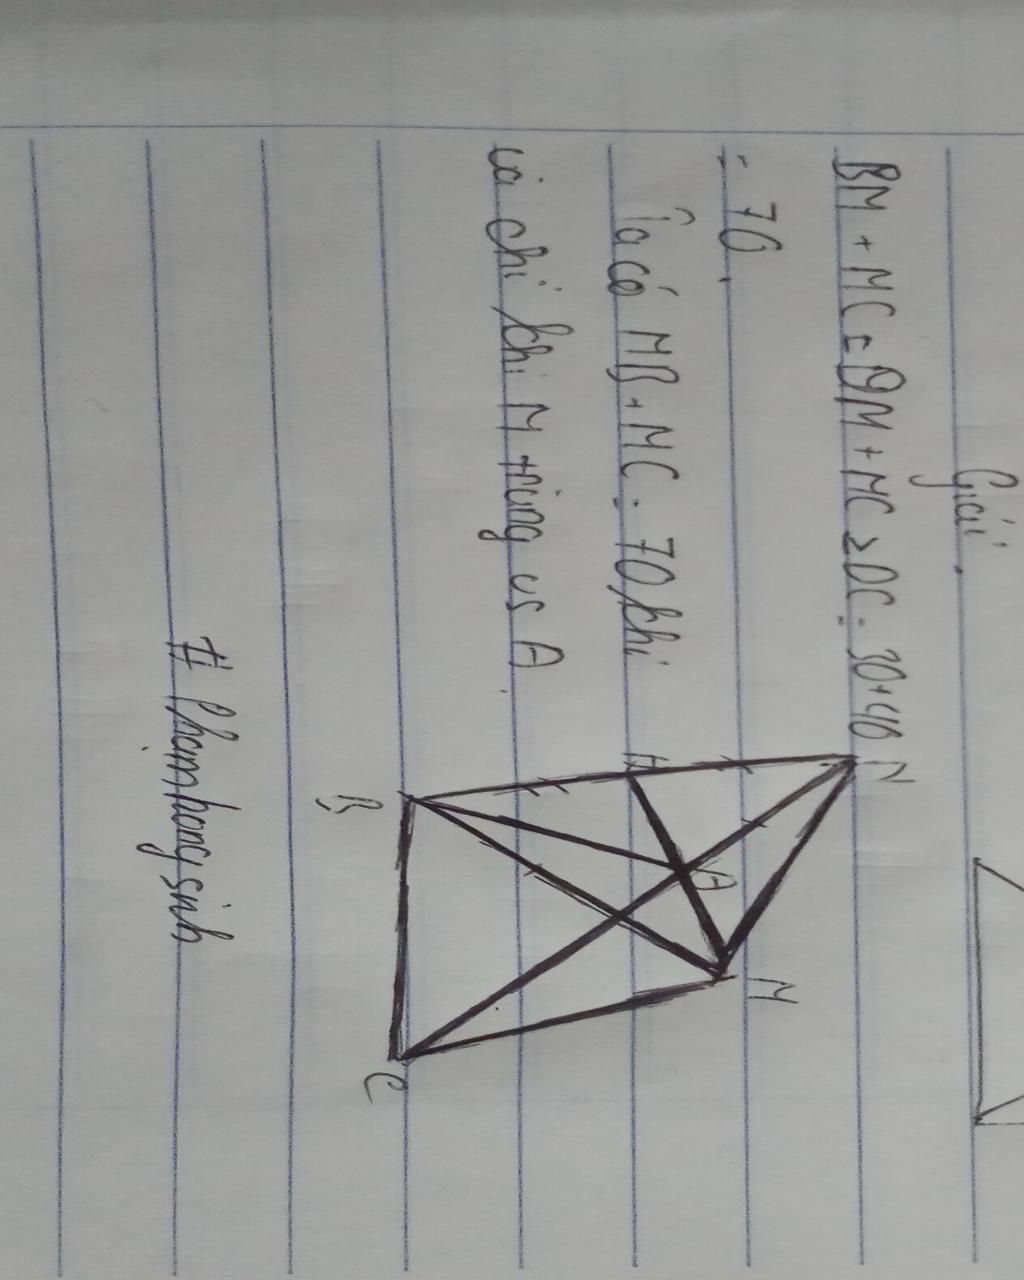 Giải.
BM + MC = DM + MC ≥ DC = 30+40
= 70.
Ta có MB + MC = 70 khi
và chỉ khi M trùng vs A.
N
H
A
M
B
C
# Phamhongsinh